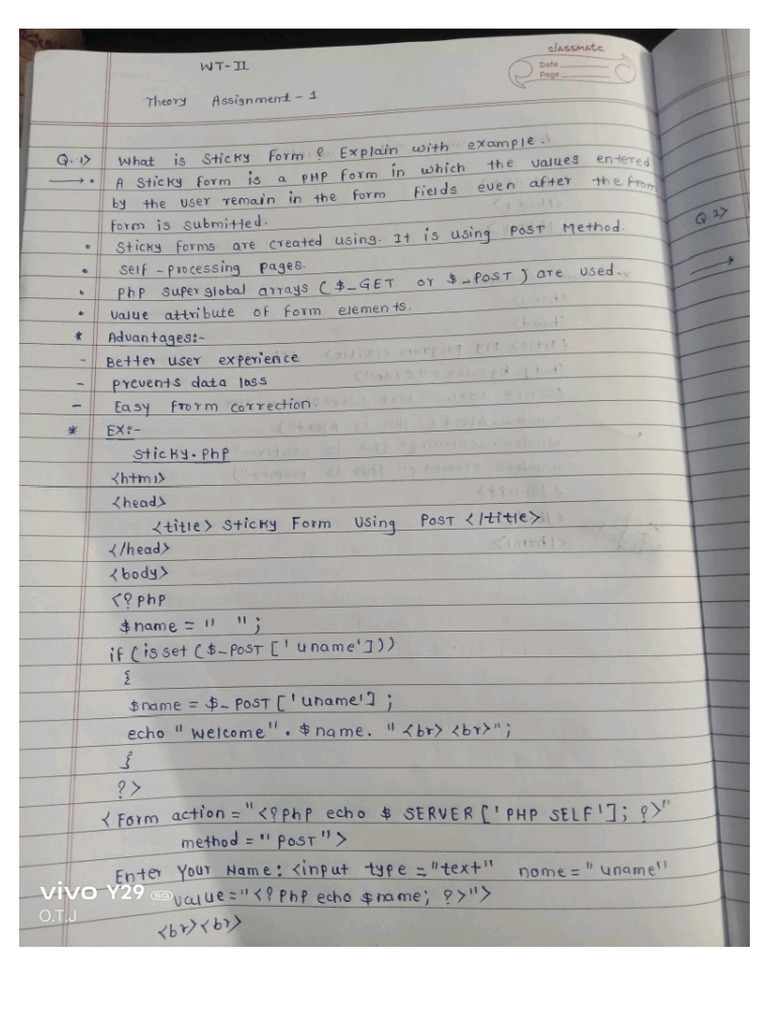 classmate
Date
Page
WT-II
Theory Assignment - 1
Q.1> What is Sticky form ? Explain with example.
→ • A Sticky form is a PHP form in which the values entered
by the user remain in the form fields even after the from
form is submitted.
• Sticky forms are created using. It is using POST Method.
• Self-processing pages.
• PhP superglobal arrays ( $_GET or $_POST ) are used.
• value attribute of form elements.
* Advantages:-
- Better user experience
- prevents data loss
- Easy from correction.
* EX:-
Sticky.php
<html>
<head>
<title> Sticky Form Using POST </title>
</head>
<body>
<?php
$name = " ";
if (isset ($_POST ['uname']))
{
$name = $_POST ['uname'] ;
echo "Welcome" . $name. "<br> <br>";
}
?>
< Form action = "<?php echo $ SERVER ['PHP SELF']; ?>"
method = "POST">
Enter Your Name: <input type = "text" name = "uname"
value = "<?php echo $name; ?>">
<br><br>
Q 2>
→
vivo Y29 5G
O.T.J